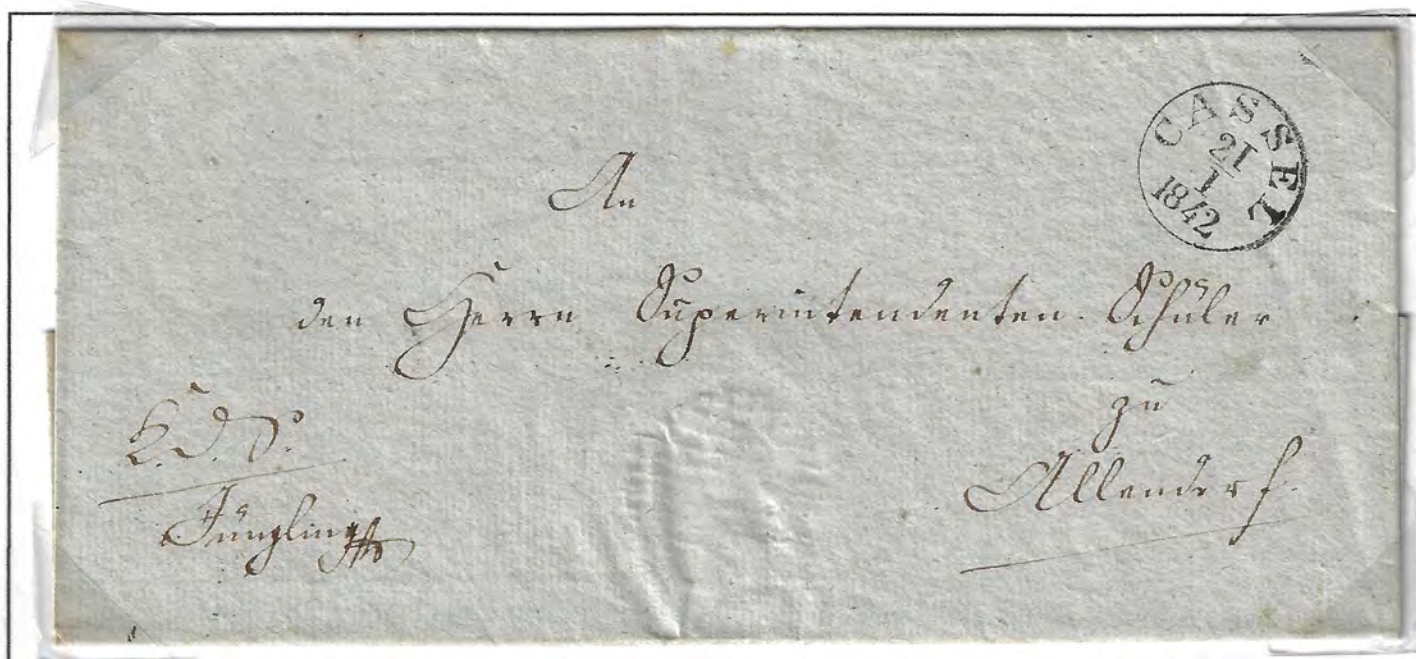 CASSEL
21
1
1842
An
den Herrn Superintendenten Schüler
zu
Allendorf.
K. d. S.
Jüngling